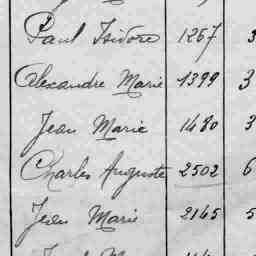 Paul Isidore 1267 3
Alexandre Marie 1399 3
Jean Marie 1480 3
Charles Auguste 2502 6
Jean Marie 2145 5